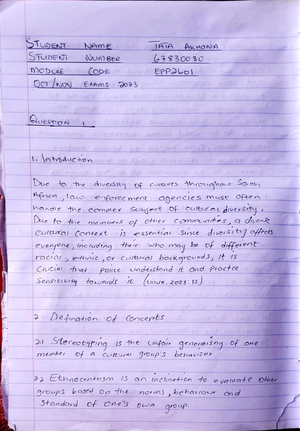 STUDENT NAME TATA AKHONA
STUDENT NUMBER 67830080
MODULE CODE EPP2601
OCT/NOV EXAMS 2023
QUESTION 1
1. Introduction
Due to the diversity of cultures throughout South
Africa, law enforcement agencies must often
handle the complex subject of cultural diversity.
Due to the members of other communities, a diverse
cultural context is essential since diversity affects
everyone, including their who may be of different
racial, ethnic, or cultural backgrounds, it is
crucial that police understand it and practice
sensitivity towards it (Unisa, 2023:
2 Definition of concepts
2.1 Stereotyping is the unfair generalising of one
member of a cultural group's behaviour
2.2 Ethnocentrism is an inclination to evaluate other
groups based on the norms, behaviour and
standard of one's own group.